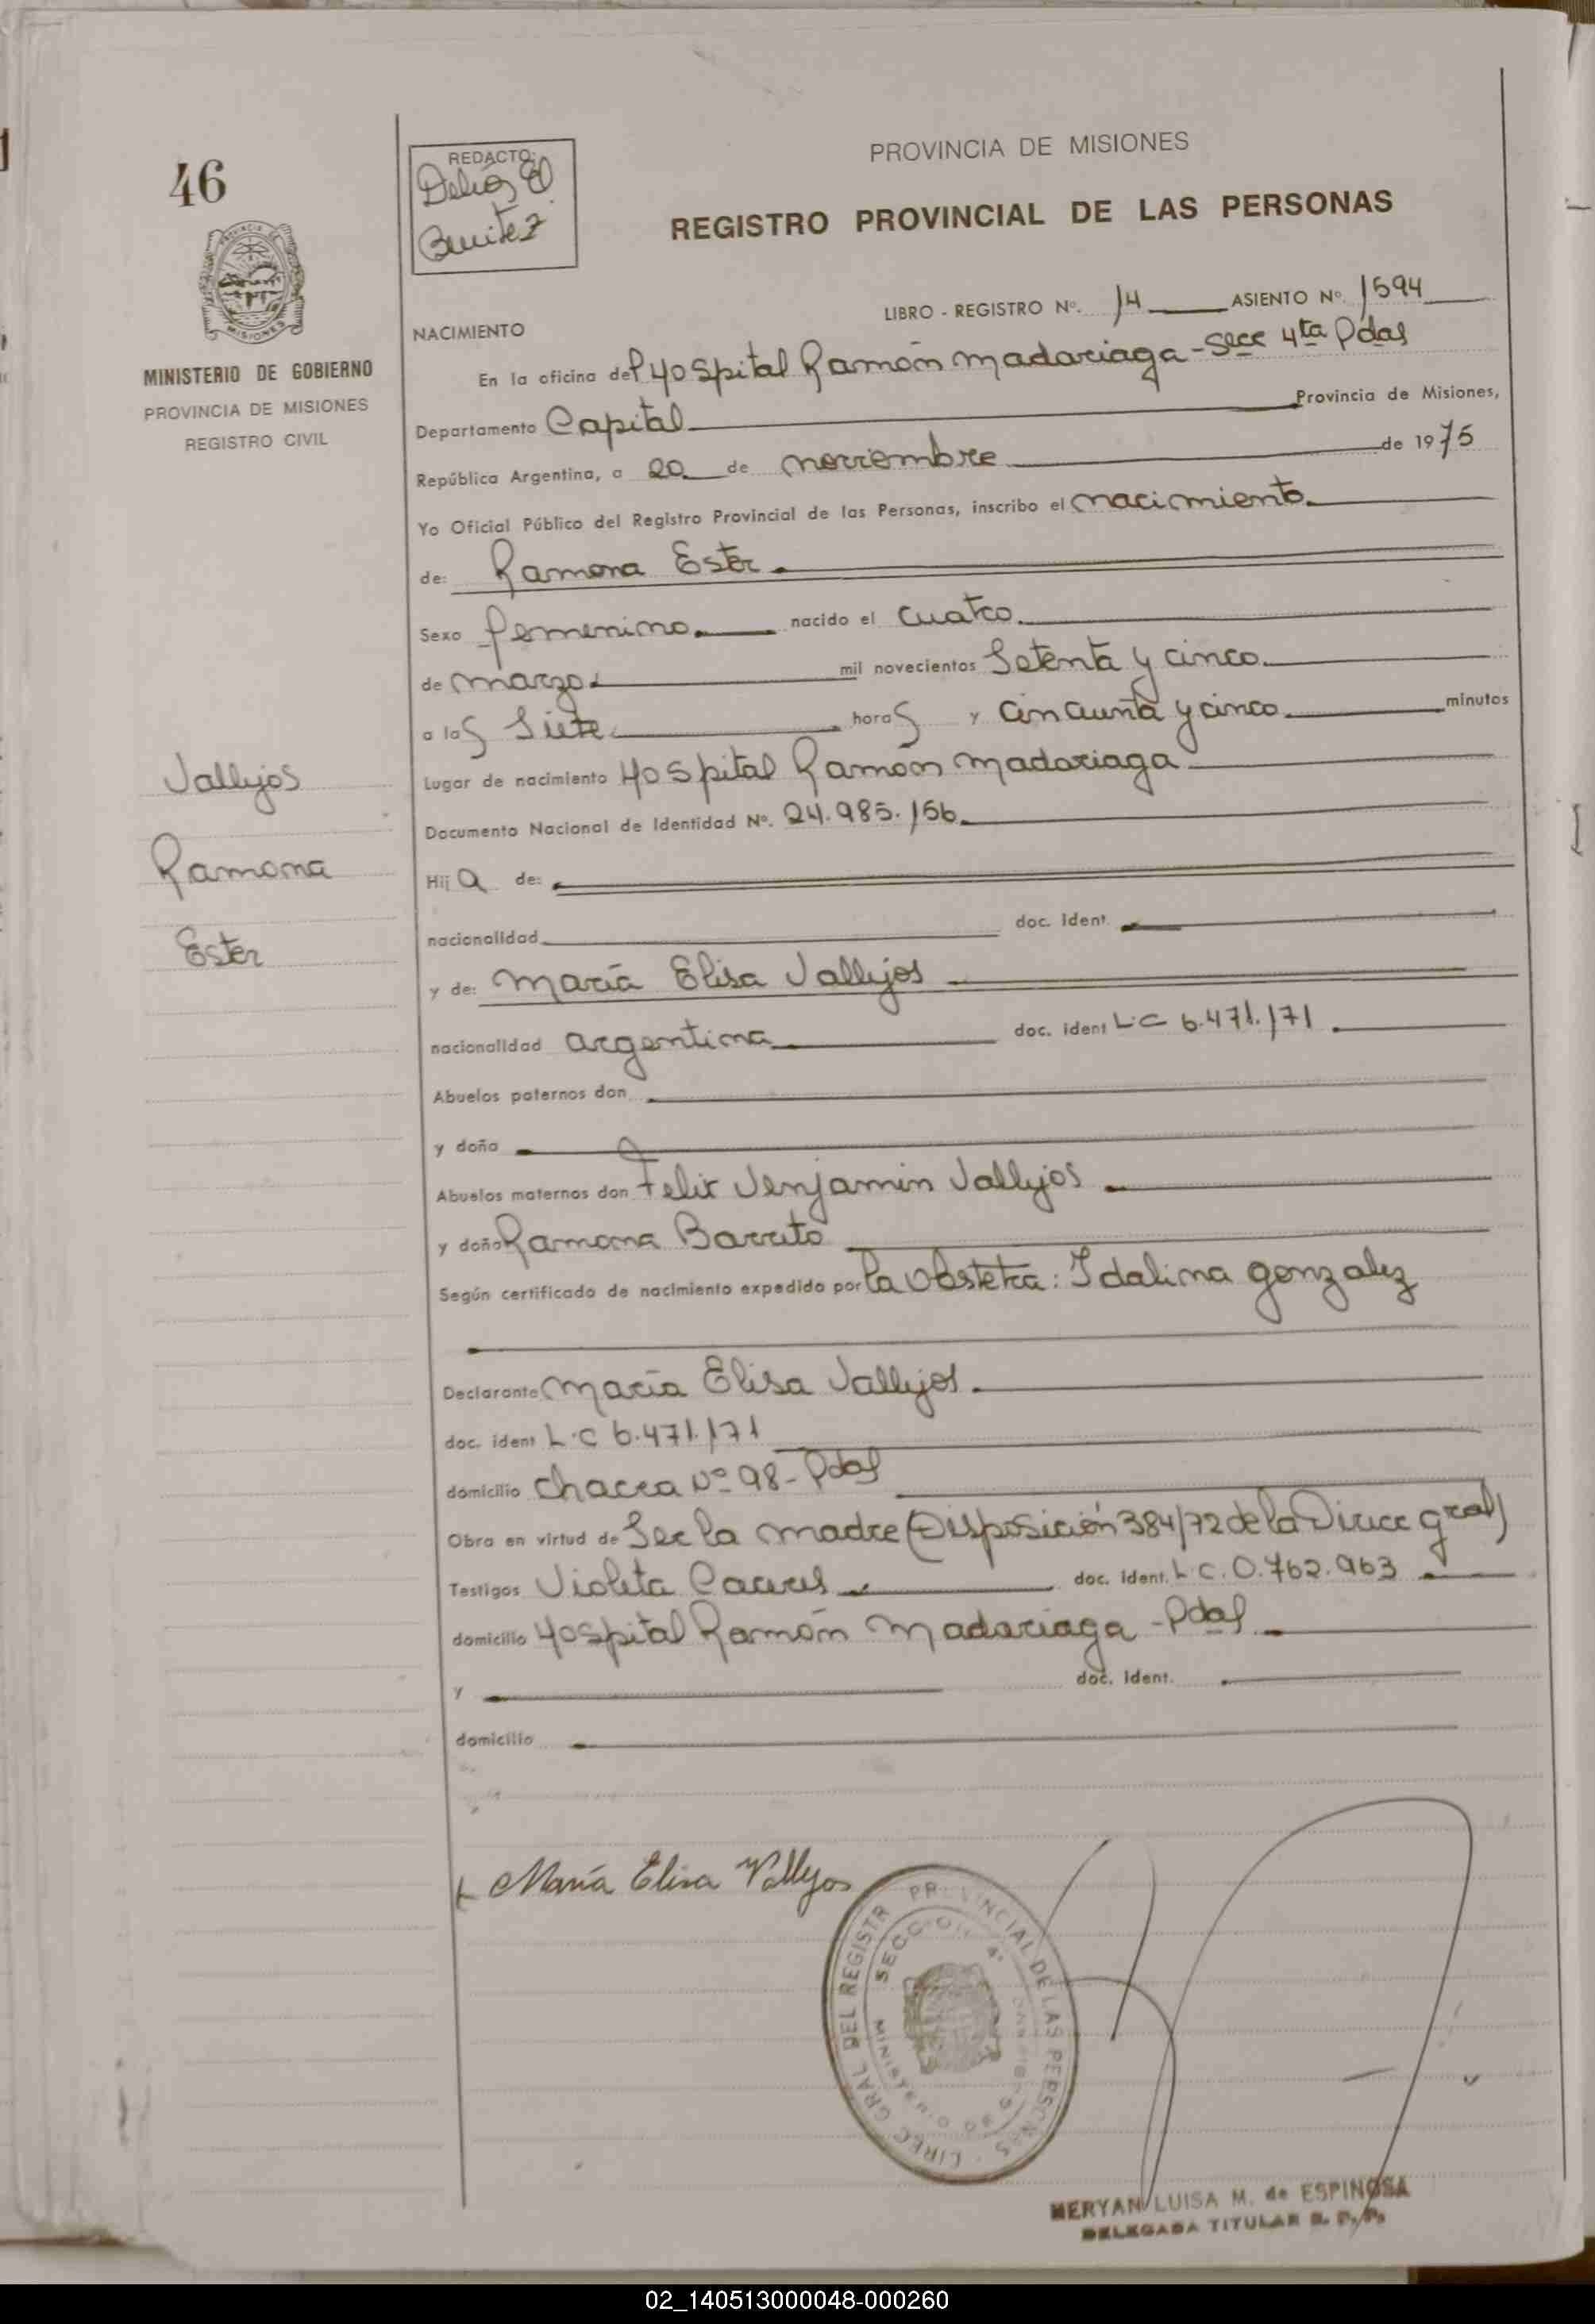 46
MINISTERIO DE GOBIERNO
PROVINCIA DE MISIONES
REGISTRO CIVIL
Vallejos
Ramona
Ester
REDACTO:
Benitez
PROVINCIA DE MISIONES
REGISTRO PROVINCIAL DE LAS PERSONAS
LIBRO - REGISTRO Nº. 14 ASIENTO Nº. 1594
NACIMIENTO
En la oficina del Hospital Ramón Madariaga - Secc 4ta Pdas
Departamento Capital Provincia de Misiones,
República Argentina, a 20 de noviembre de 1975
Yo Oficial Público del Registro Provincial de las Personas, inscribo el nacimiento
de: Ramona Ester
Sexo femenino nacido el cuatro
de marzo mil novecientos setenta y cinco
a las siete horas y cincuenta y cinco minutos
Lugar de nacimiento Hospital Ramón Madariaga
Documento Nacional de Identidad Nº. 24.985.156
Hija de:
nacionalidad doc. ident.
y de: María Elisa Vallejos
nacionalidad argentina doc. ident L.C 6.471.171
Abuelos paternos don
y doña
Abuelos maternos don Felix Venjamin Vallejos
y doña Ramona Barrito
Según certificado de nacimiento expedido por la obstetra: Idalina Gonzalez
Declarante María Elisa Vallejos
doc. ident L.C 6.471.171
domicilio Chacra Nº 98 - Pdas
Obra en virtud de ser la madre (Disposición 384/72 de la Direcc gral)
Testigos Violeta doc. ident. L.C. 0.762.963
domicilio Hospital Ramón Madariaga - Pdas
y doc. ident.
domicilio
María Elisa Vallejos
DIREC GRAL DEL REGISTR PROVINCIAL DE LAS PERSONAS
SECCION 4ª
MINISTERIO DE GOBIERNO
MERYAN LUISA M. de ESPINOSA
DELEGADA TITULAR R. P. P.
02_140513000048-000260